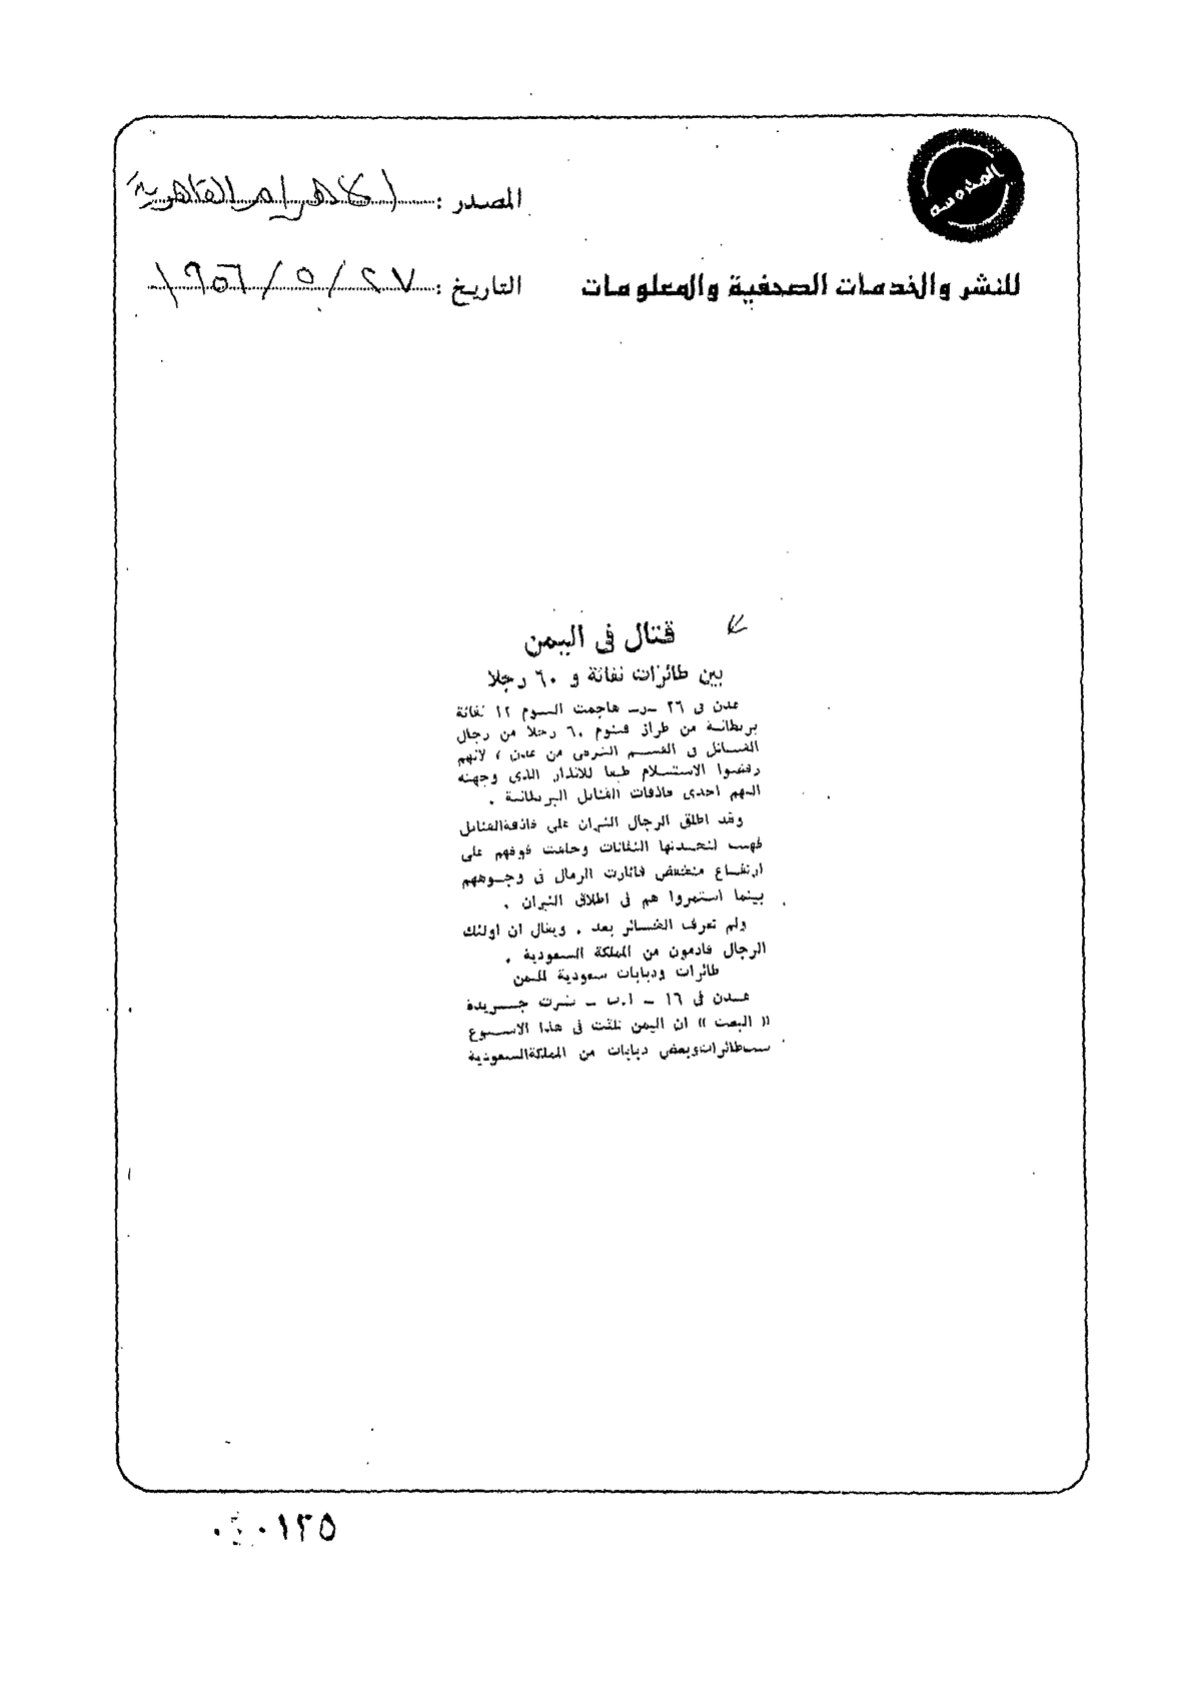 المحروسة
المصدر : الاهرام القاهرية
للنشر والخدمات الصحفية والمعلومات
التاريخ : ٢٧ / ٥ / ١٩٥٦
قتال فى اليمن
بين طائرات نفاثة و ٦٠ رجلا
عدن فى ٢٦ ــ ر ــ هاجمت اليوم ١٢ نفاثة
بريطانية من طراز فينوم ٦٠ رجلا من رجال
القبائل فى القسم الشرقى من عدن ، لانهم
رفضوا الاستسلام طبقا للانذار الذى وجهته
اليهم احدى قاذفات القنابل البريطانية .
وقد اطلق الرجال النيران على قاذفة القنابل
فهبت لنجدتها النفاثات وحلقت فوقهم على
ارتفاع منخفض فاثارت الرمال فى وجوههم
بينما استمروا هم فى اطلاق النيران .
ولم تعرف الخسائر بعد . ويقال ان اولئك
الرجال قادمون من المملكة السعودية .
طائرات ودبابات سعودية لليمن
عدن فى ١٦ ــ ا.ب ــ نشرت جريدة
« البعث » ان اليمن تلقت فى هذا الاسبوع
ست طائرات وبعض دبابات من المملكة السعودية
١٢٥